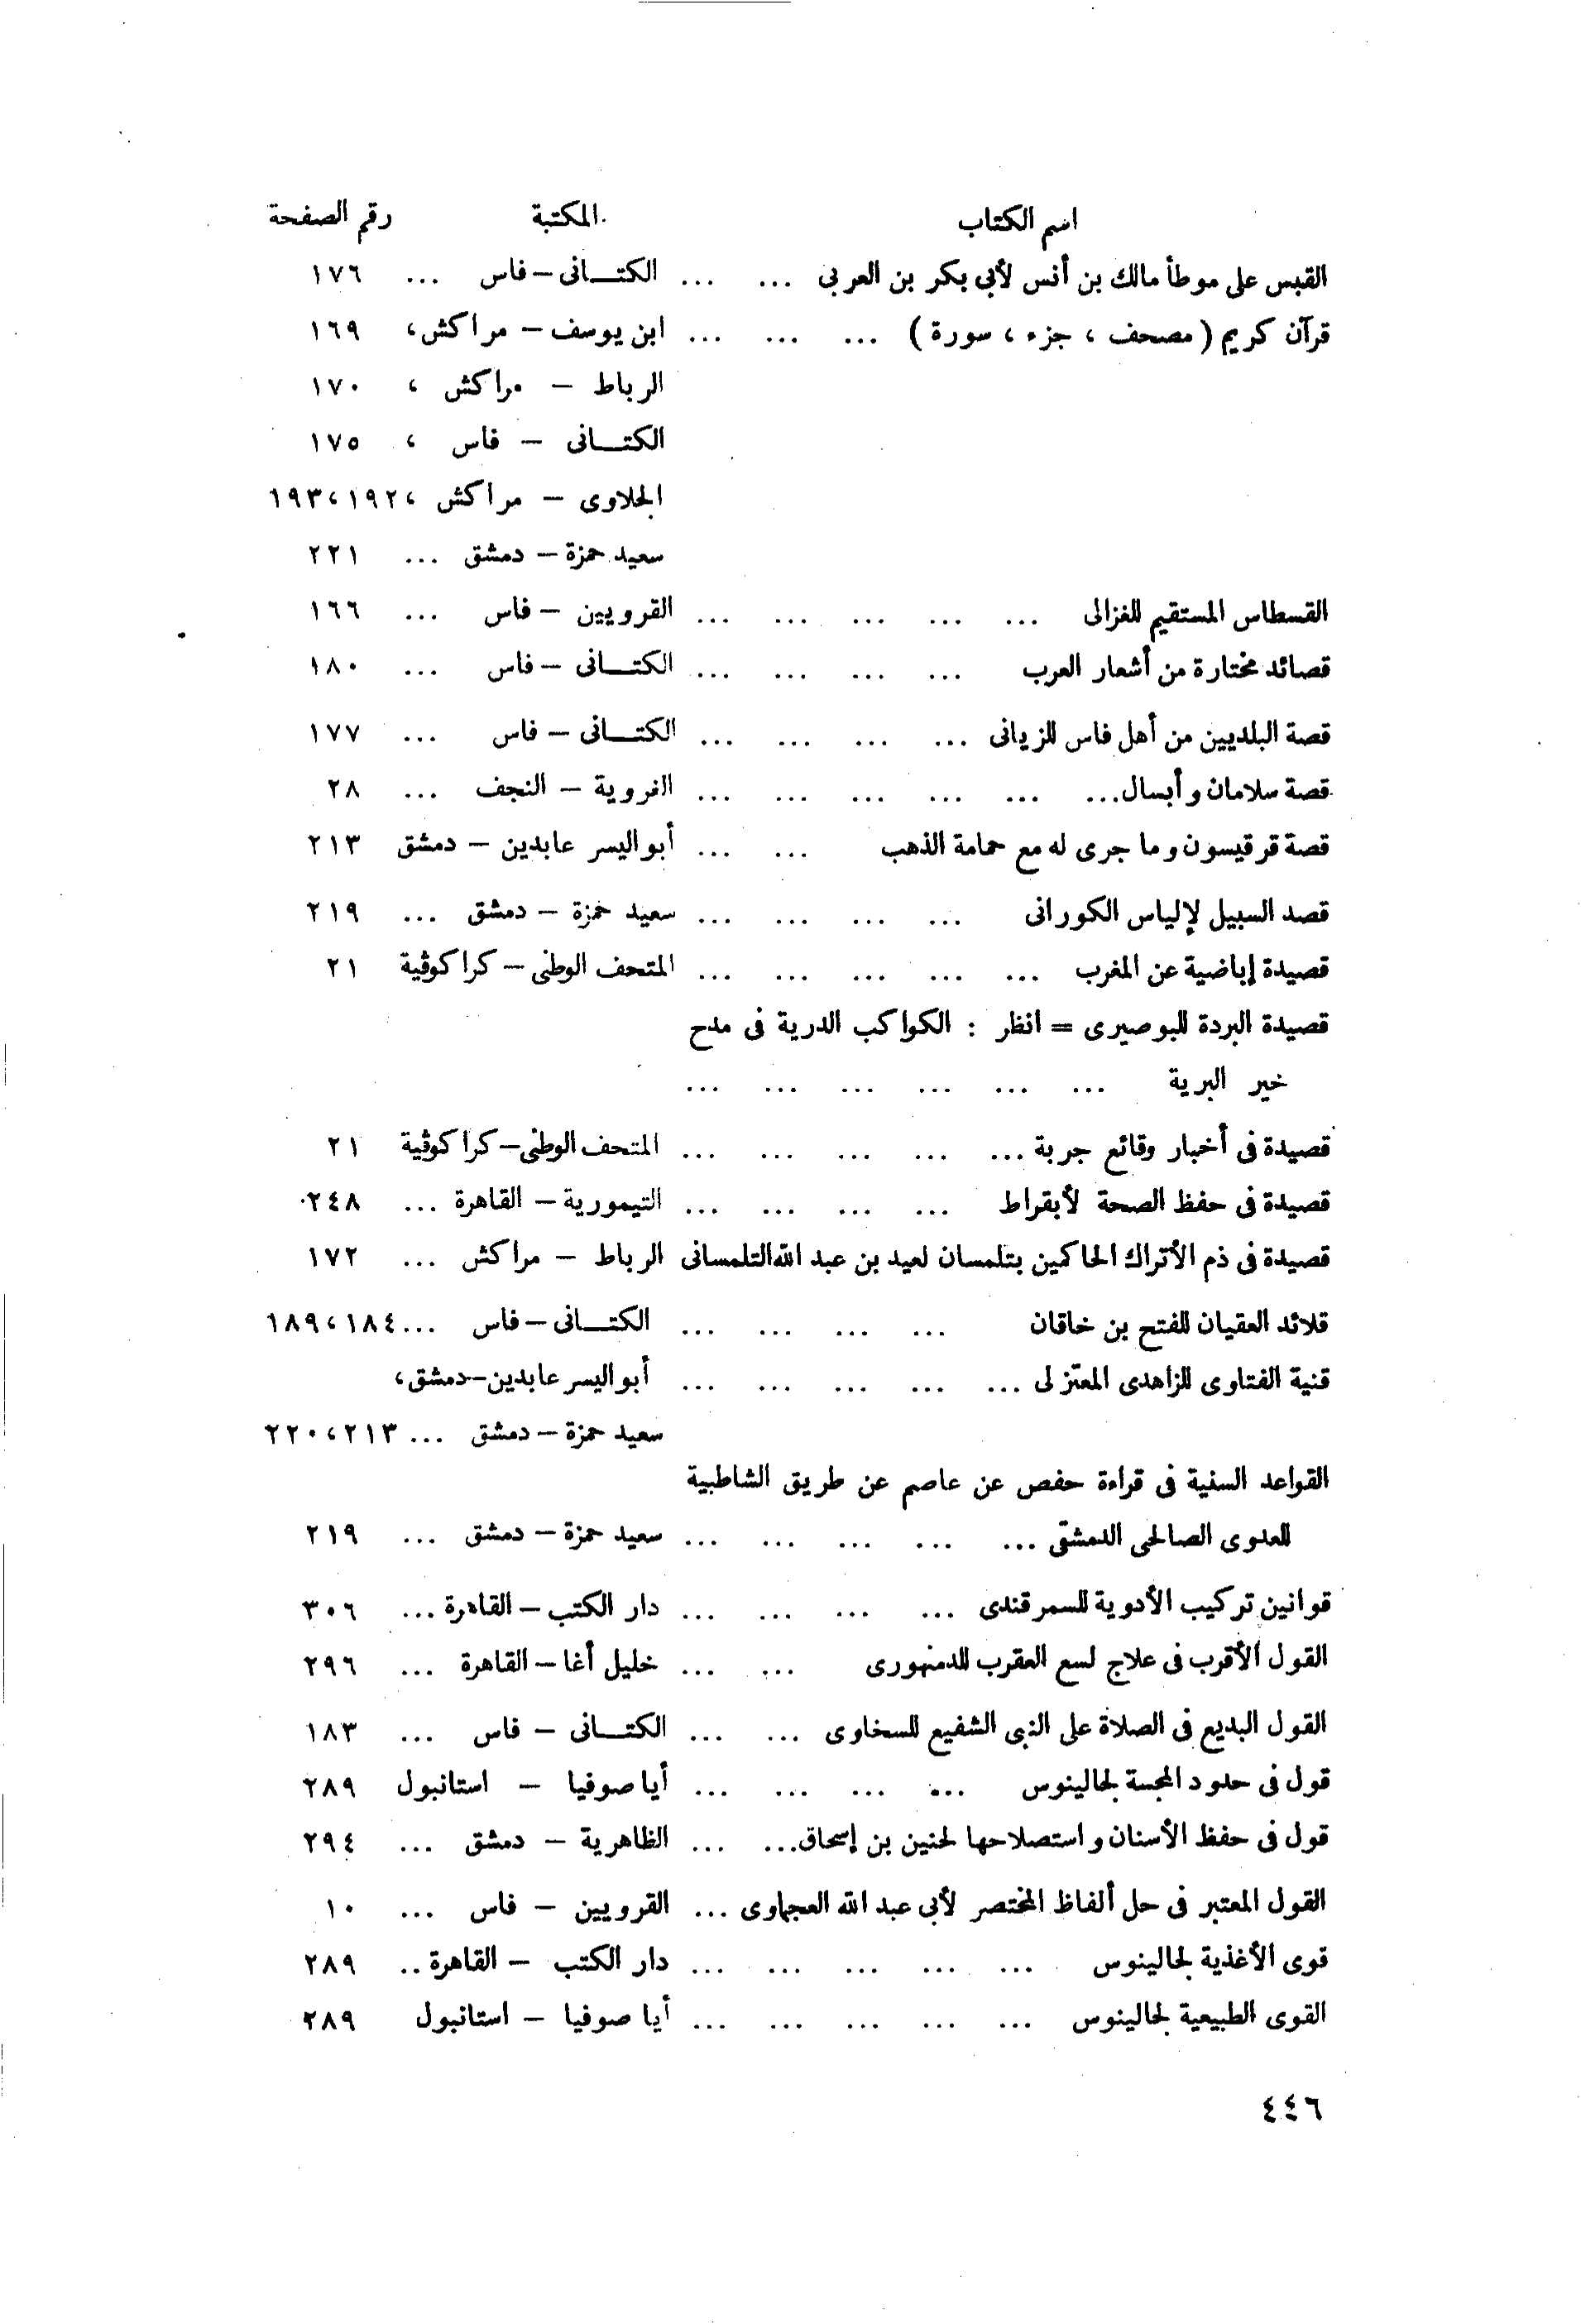 اسم الكتاب المكتبة رقم الصفحة
القبس على موطأ مالك بن أنس لأبي بكر بن العربى ... ... الكتـــانى – فاس ... ١٧٦
قرآن كريم ( مصحف ، جزء ، سورة ) ... ... ... ابن يوسف – مراكش، ١٦٩
الرباط – مراكش ، ١٧٠
الكتـــانى – فاس ، ١٧٥
الجلاوى – مراكش ، ١٩٢، ١٩٣
سعيد حمزة – دمشق ... ٢٢١
القسطاس المستقيم للغزالى ... ... ... ... ... القرويين – فاس ... ١٦٦
قصائد مختارة من أشعار العرب ... ... ... ... الكتـــانى – فاس ... ١٨٠
قصة البلديين من أهل فاس للزيانى ... ... ... ... الكتـــانى – فاس ... ١٧٧
قصة سلامان وأبسال... ... ... ... ... ... الغروية – النجف ... ٢٨
قصة قرقيسون وما جرى له مع حمامة الذهب ... ... أبو اليسر عابدين – دمشق ٢١٣
قصد السبيل لإلياس الكورانى ... ... ... ... سعيد حمزة – دمشق ... ٢١٩
قصيدة إباضية عن المغرب ... ... ... ... ... المتحف الوطنى – كراكوڤية ٢١
قصيدة البردة للبوصيرى = انظر : الكواكب الدرية فى مدح
خير البرية ... ... ... ... ... ...
قصيدة فى أخبار وقائع جربة ... ... ... ... ... المتحف الوطنى – كراكوڤية ٢١
قصيدة فى حفظ الصحة لأبقراط ... ... ... ... التيمورية – القاهرة ... ٢٤٨
قصيدة فى ذم الأتراك الحاكمين بتلمسان لعيد بن عبد الله التلمسانى الرباط – مراكش ... ١٧٢
قلائد العقيان للفتح بن خاقان ... ... ... ... الكتـــانى – فاس ... ١٨٤، ١٨٩
قنية الفتاوى للزاهدى المعتزلى ... ... ... ... ... أبو اليسر عابدين – دمشق،
سعيد حمزة – دمشق ... ٢١٣، ٢٢٠
القواعد السنية فى قراءة حفص عن عاصم عن طريق الشاطبية
للعدوى الصالحى الدمشقى ... ... ... ... ... سعيد حمزة – دمشق ... ٢١٩
قوانين تركيب الأدوية للسمرقندى ... ... ... ... دار الكتب – القاهرة ... ٣٠٦
القول الأقرب فى علاج لسع العقرب للدمنهورى ... ... خليل أغا – القاهرة ... ٢٩٦
القول البديع فى الصلاة على النبى الشفيع للسخاوى ... ... الكتـــانى – فاس ... ١٨٣
قول فى حدود المجسة لجالينوس ... ... ... ... أيا صوفيا – استانبول ٢٨٩
قول فى حفظ الأسنان واستصلاحها لحنين بن إسحاق... ... الظاهرية – دمشق ... ٢٩٤
القول المعتبر فى حل ألفاظ المختصر لأبى عبد الله العجماوى ... القرويين – فاس ... ١٠
قوى الأغذية لجالينوس ... ... ... ... ... دار الكتب – القاهرة .. ٢٨٩
القوى الطبيعية لجالينوس ... ... ... ... ... أيا صوفيا – استانبول ٢٨٩
٤٤٦